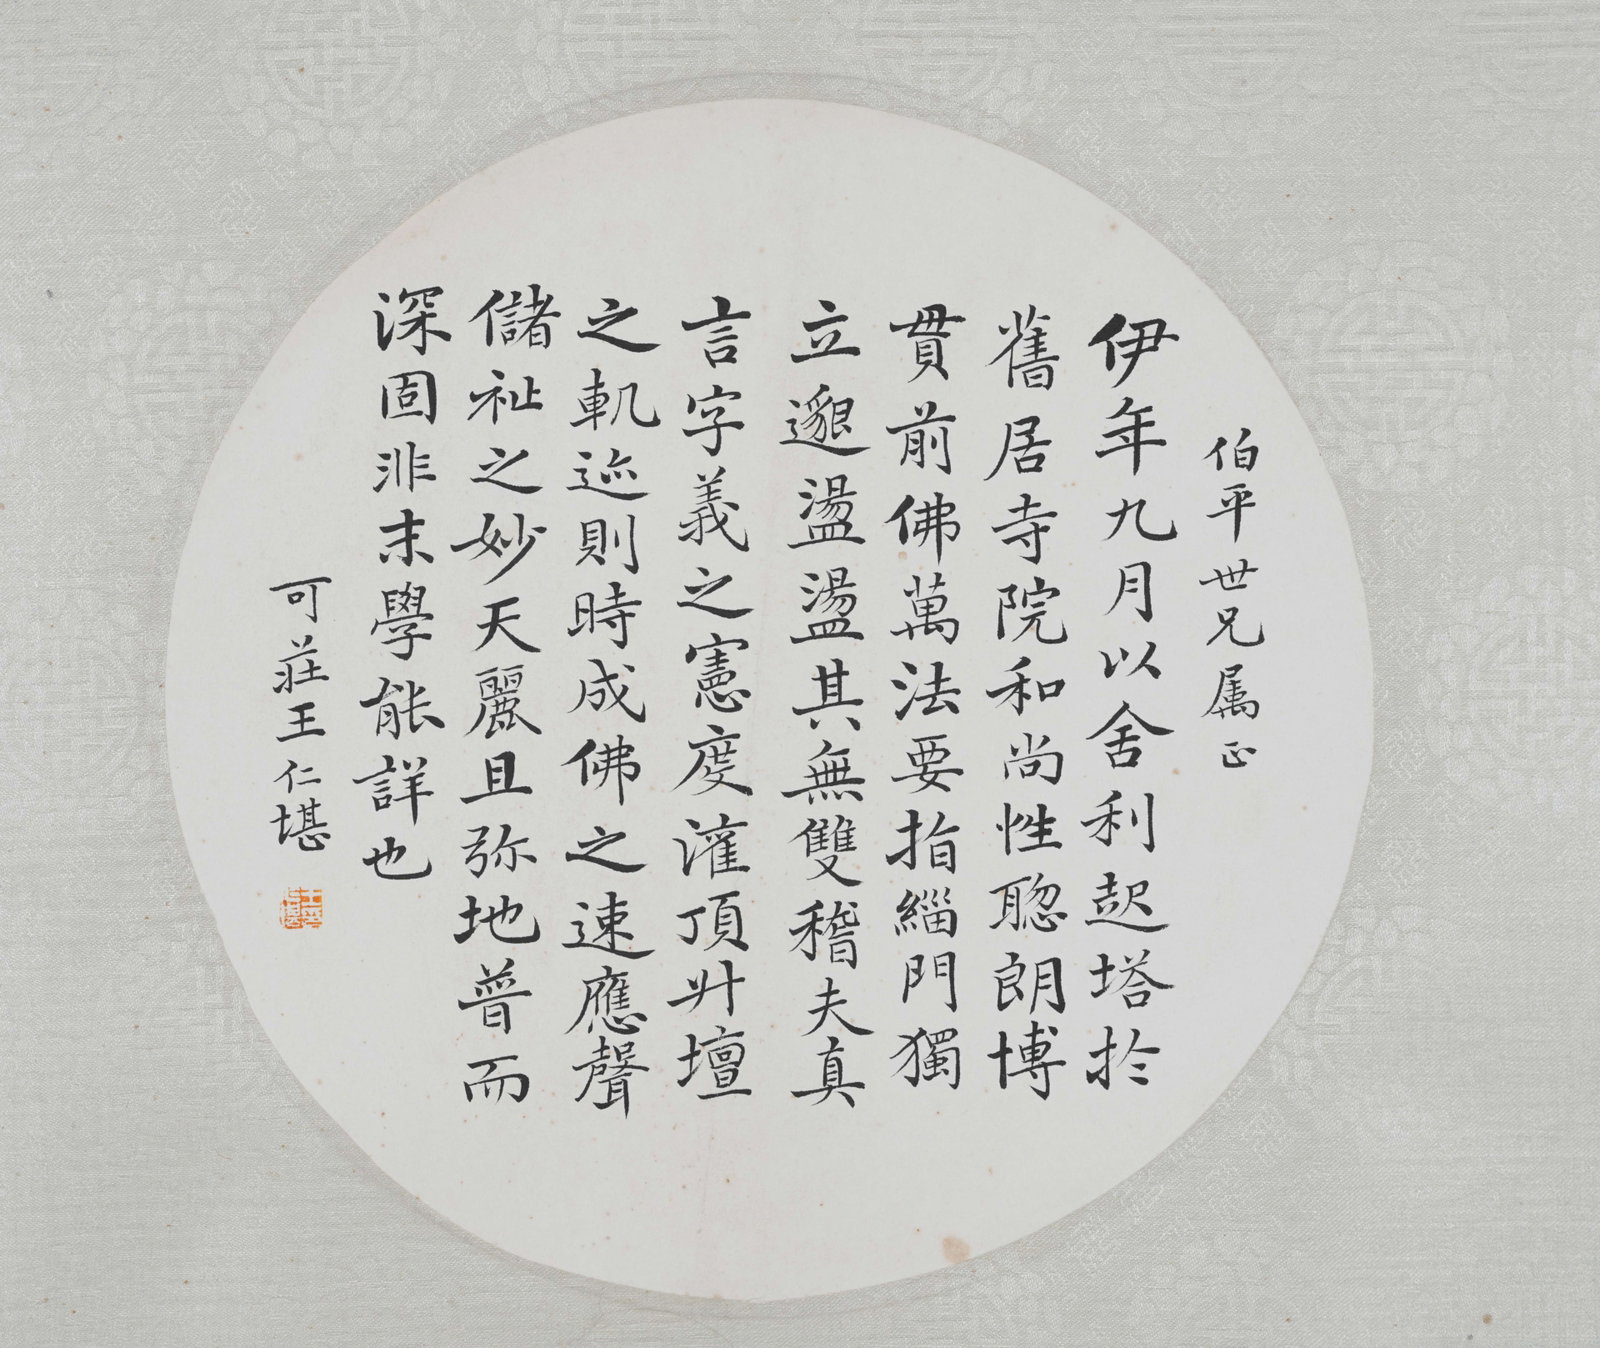 伯平世兄属正
伊年九月以舍利起塔於
舊居寺院和尚性聰朗博
貫前佛萬法要指緇門獨
立邈盪盪其無雙稽夫真
言字義之憲度灌頂升壇
之軌迹則時成佛之速應聲
儲祉之妙天麗且弥地普而
深固非末學能詳也
可莊王仁堪